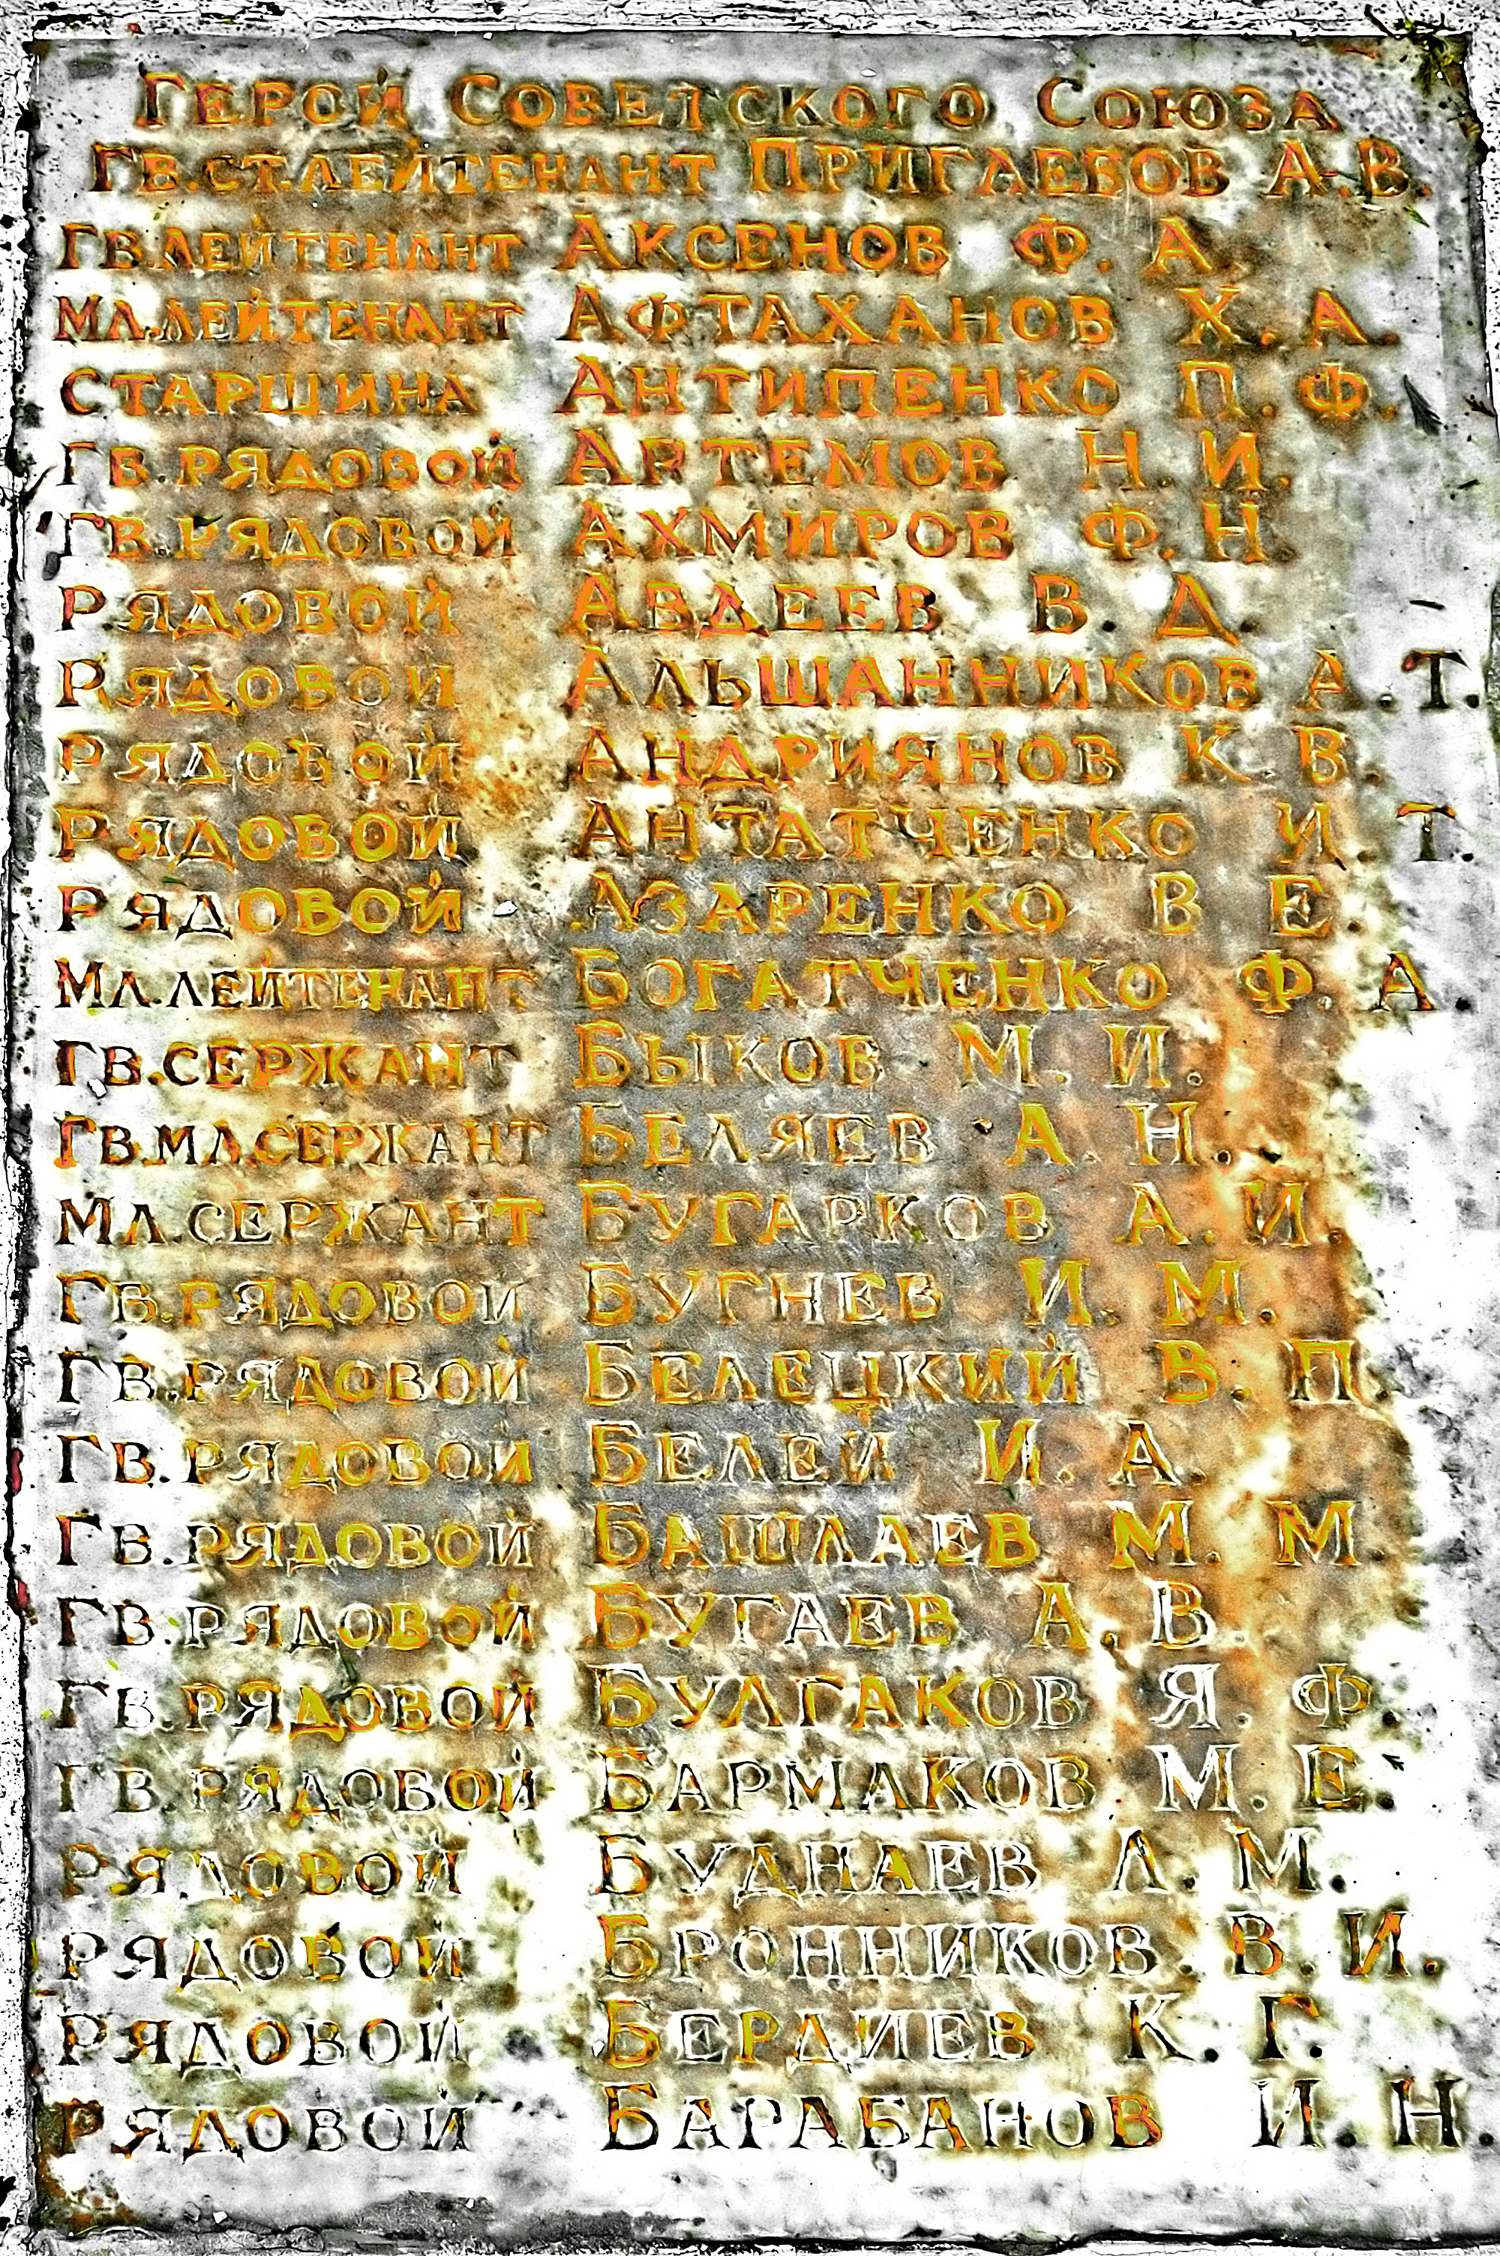 Герой Советского Союза
Гв.ст.лейтенант Пригаебов А.В.
Гв.лейтенант Аксенов Ф. А
Мл.лейтенант Афтаханов Х. А.
Старшина Антипенко П. Ф.
Гв.рядовой Артемов Н. И.
Гв.рядовой Ахмиров Ф. Н
Рядовой Авдеев В. Д.
Рядовой Альшанников А. Т.
Рядовой Андриянов К. В.
Рядовой Антатченко И. Т.
Рядовой Азаренко В Е.
Мл.лейтенант Богатченко Ф. А.
Гв.сержант Быков М. И.
Гв.мл.сержант Беляев А. Н.
Мл.сержант Бугарков А. И.
Гв.рядовой Бугнев И. М.
Гв.рядовой Белецкий В. П.
Гв.рядовой Белей И. А.
Гв.рядовой Башлаев М. М
Гв.рядовой Бугаев А. В.
Гв.рядовой Булгаков Я. Ф.
Гв.рядовой Бармаков М. Е.
Рядовой Буднаев Л. М.
Рядовой Бронников В. И.
Рядовой Бердиев К. Г.
Рядовой Барабанов И. Н.